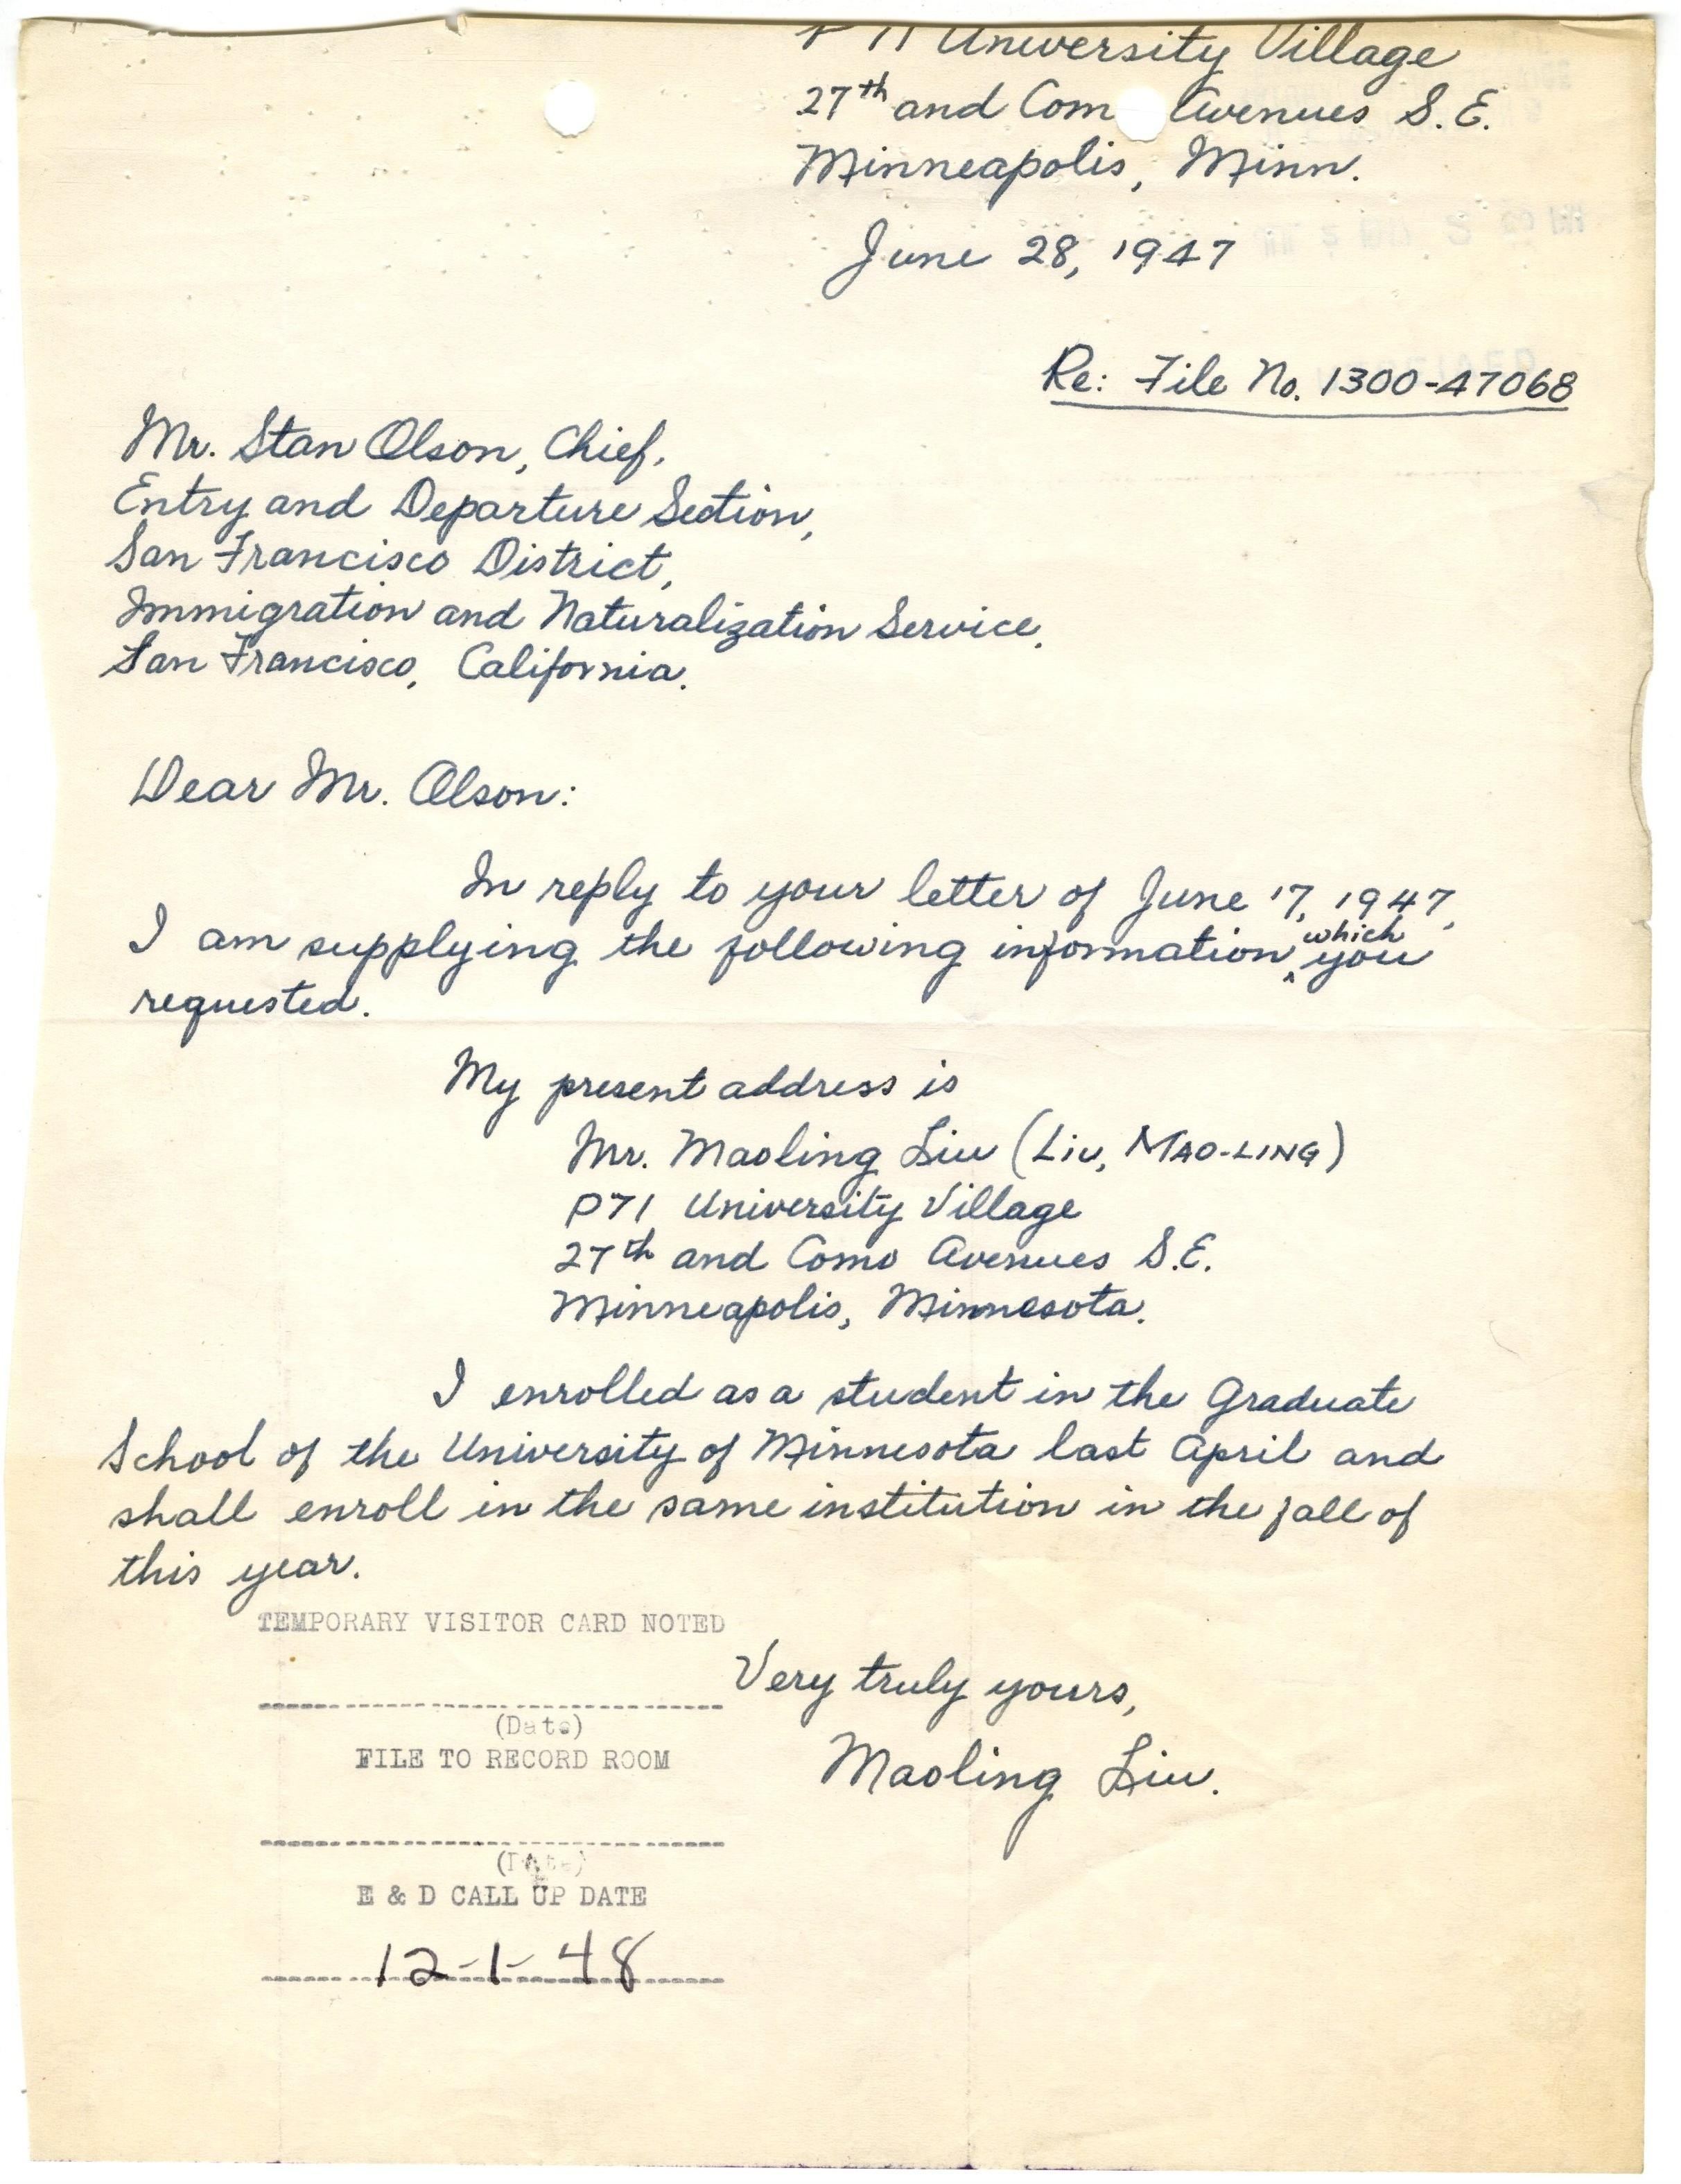 P71 University Village
27th and Com Avenues S.E.
Minneapolis, Minn.
June 28, 1947
Re: File No. 1300-47068
Mr. Stan Olson, Chief,
Entry and Departure Section,
San Francisco District,
Immigration and Naturalization Service,
San Francisco, California.
Dear Mr. Olson:
In reply to your letter of June 17, 1947,
I am supplying the following information which you
requested.
My present address is
Mr. Maoling Liu (LIU, MAO-LING)
P71 University Village
27th and Como Avenues S.E.
Minneapolis, Minnesota.
I enrolled as a student in the Graduate
School of the University of Minnesota last April and
shall enroll in the same institution in the fall of
this year.
TEMPORARY VISITOR CARD NOTED
Very truly yours,
(Date)
FILE TO RECORD ROOM
Maoling Liu.
(Date)
E & D CALL UP DATE
12-1-48